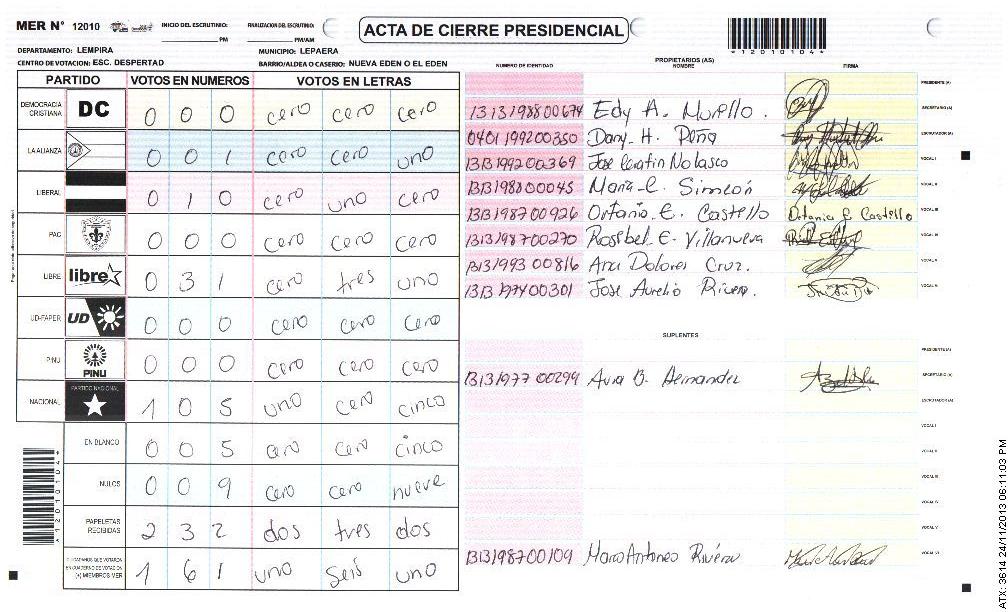 MER N° 12010 INICIO DEL ESCRUTINIO: PM FINALIZACION DEL ESCRUTINIO: PM/AM
ACTA DE CIERRE PRESIDENCIAL
*1201010 4*
DEPARTAMENTO: LEMPIRA MUNICIPIO: LEPAERA
CENTRO DE VOTACION: ESC. DESPERTAD BARRIO/ALDEA O CASERIO: NUEVA EDEN O EL EDEN
PARTIDO VOTOS EN NUMEROS VOTOS EN LETRAS
DEMOCRACIA CRISTIANA DC 0 0 0 cero cero cero
LA ALIANZA 0 0 1 cero cero uno
LIBERAL 0 1 0 cero uno cero
PAC 0 0 0 cero cero cero
LIBRE libre 0 3 1 cero tres uno
UD-FAPER UD 0 0 0 cero cero cero
PINU PINU 0 0 0 cero cero cero
NACIONAL PARTIDO NACIONAL 1 0 5 uno cero cinco
EN BLANCO 0 0 5 cero cero cinco
NULOS 0 0 9 cero cero nueve
PAPELETAS RECIBIDAS 2 3 2 dos tres dos
CIUDADANOS QUE VOTARON EN CUADERNO DE VOTACION (+) MIEMBROS MER 1 6 1 uno seis uno
PROPIETARIOS (AS)
NUMERO DE IDENTIDAD NOMBRE FIRMA
PRESIDENTE (A)
1313198800674 Edy A. Murillo. SECRETARIO (A)
0401199200350 Dany. H. Peña ESCRUTADOR (A)
1313199200369 Jose Nolasco VOCAL I
1313198800045 Maria C. Simeón VOCAL II
1313198700926 Ortanio. E. Castello VOCAL III
1313198700270 Rosibel. E. Villanueva VOCAL IV
1313199300816 Ana Dolores Cruz. VOCAL V
1313197400301 Jose Aurelio Rivera. VOCAL VI
SUPLENTES
PRESIDENTE (A)
1313197700299 Aura O. Hernandez SECRETARIO (A)
ESCRUTADOR (A)
VOCAL I
VOCAL II
VOCAL III
VOCAL IV
VOCAL V
1313198700109 Marco Antoneo Rivera VOCAL VI
ATX: 3614 24/11/2013 06:11:03 PM